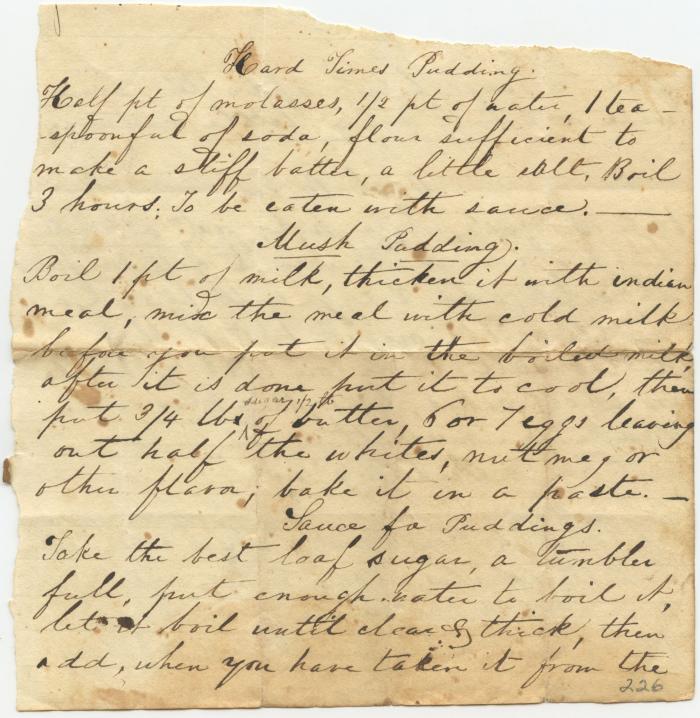 Hard Times Pudding.
Half pt of molasses, 1/2 pt of water, 1 tea-
-spoonful of soda, flour sufficient to
make a stiff batter, a little salt. Boil
3 hours; To be eaten with sauce. —
Mush Pudding.
Boil 1 pt of milk, thicken it with indian
meal, mix the meal with cold milk
before you put it in the boiled milk,
after it is done put it to cool, then
sugar 1/2 lb
put 3/4 lbs of butter, 6 or 7 eggs leaving
out half the whites, nutmeg or
other flavor; bake it in a paste. —
Sauce for Puddings.
Take the best loaf sugar, a tumbler
full, put enough water to boil it,
let it boil until clear & thick, then
add, when you have taken it from the
226